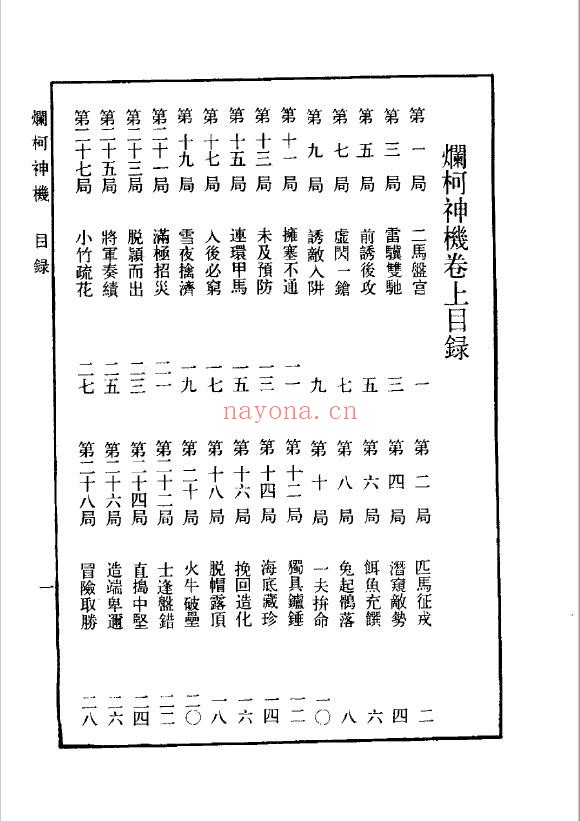 爛柯神機卷上目錄
第一局 二馬盤宮 一
第二局 匹馬征戎 二
第三局 雷驥雙馳 三
第四局 潛窺敵勢 四
第五局 前誘後攻 五
第六局 餌魚充饌 六
第七局 虛閃一鎗 七
第八局 兔起鶻落 八
第九局 誘敵入阱 九
第十局 一夫拚命 一〇
第十一局 擁塞不通 一一
第十二局 獨具鑪錘 一二
第十三局 未及預防 一三
第十四局 海底藏珍 一四
第十五局 連環甲馬 一五
第十六局 挽回造化 一六
第十七局 入後必窮 一七
第十八局 脱帽露頂 一八
第十九局 雪夜擒濟 一九
第二十局 火牛破壘 二〇
第二十一局 滿極招災 二一
第二十二局 士逢盤錯 二二
第二十三局 脱穎而出 二三
第二十四局 直搗中堅 二四
第二十五局 將軍奏績 二五
第二十六局 造端卑邇 二六
第二十七局 小竹疏花 二七
第二十八局 冒險取勝 二八
爛柯神機 目錄
一
nayona.cn